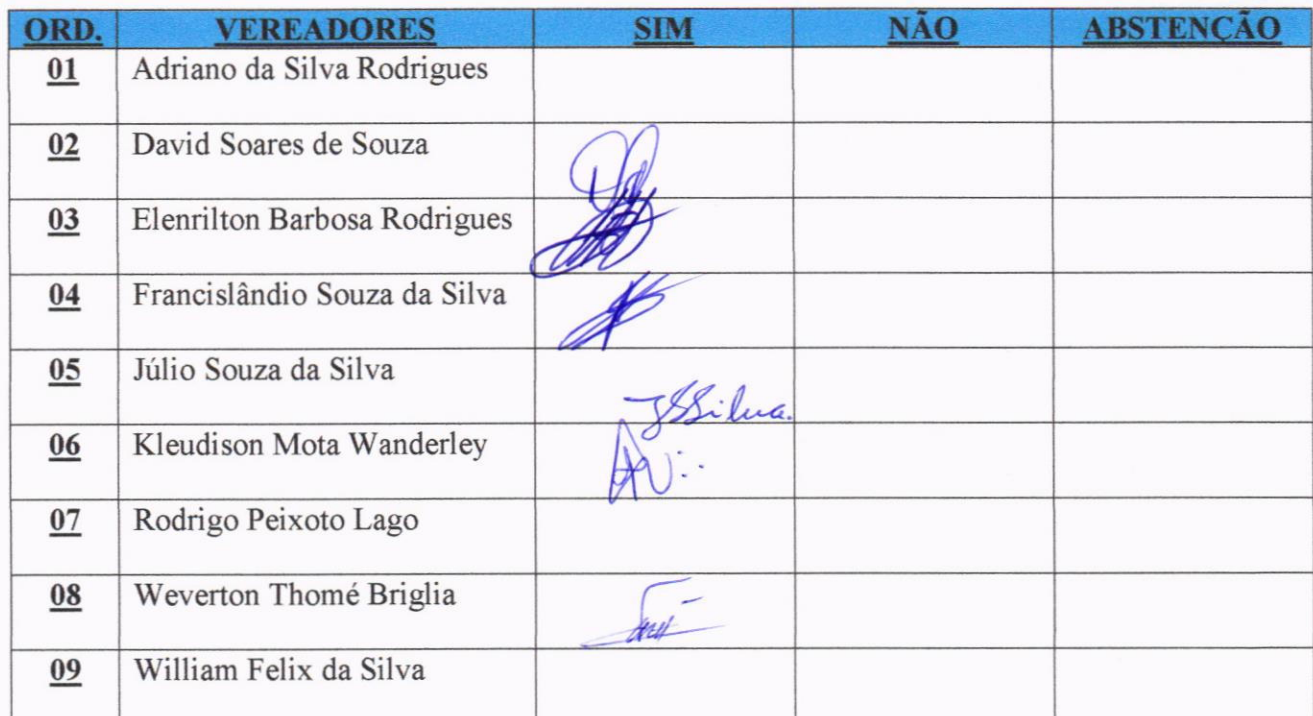 ORD. VEREADORES SIM NÃO ABSTENÇÃO
01 Adriano da Silva Rodrigues
02 David Soares de Souza
03 Elenrilton Barbosa Rodrigues
04 Francislândio Souza da Silva
05 Júlio Souza da Silva JSSilva.
06 Kleudison Mota Wanderley
07 Rodrigo Peixoto Lago
08 Weverton Thomé Briglia
09 William Felix da Silva